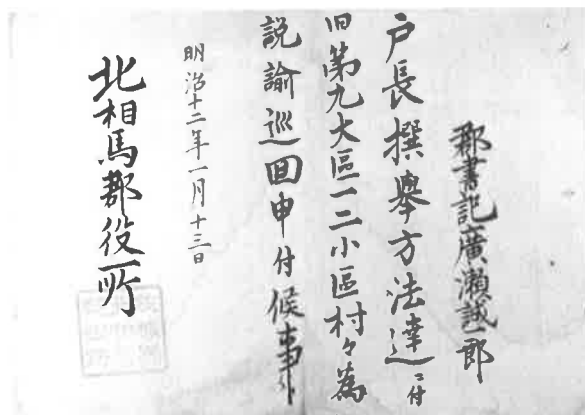 郡書記廣瀬誠一郎
戸長撰擧方法達ニ付
旧第九大區一二小區村々為
説諭巡回申付候事
明治十二年一月十三日
北相馬郡役所